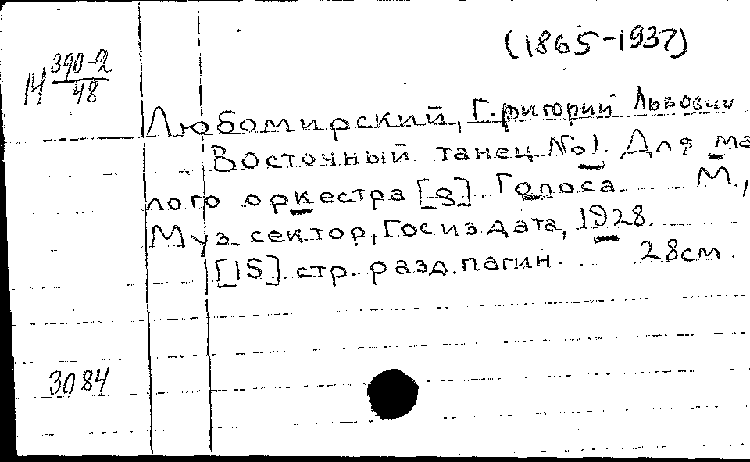 (1865-1937)
М 390-2
48
Любомирский, Григорий Львович
Восточный танец №1. Для ма
лого оркестра [8]. Голоса. М.,
Муз. сектор, Госиздата, 1928.
[15] стр. разд. пагин. 28см.
3084